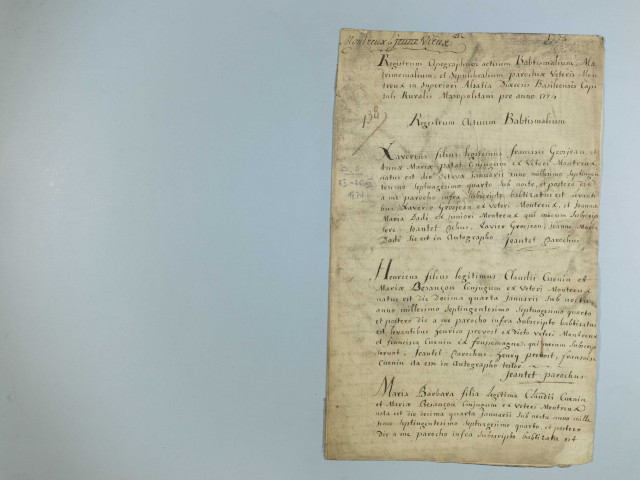 Montreux jeune Vieux
1774
Registrum Apographum actuum Babtismalium, Ma
trimonialium, et Sepulchralium parochiæ Veteris Mon
treux in Superiori Alsatia Diæcesis Basileensis Capi
tuli Ruralis Masopolitani pro anno 1774
138
Registrum Actuum Babtismalium
Xaverius filius legitimus francisci Grosjean, et
Annæ Mariæ patat Conjugum ex Veteri Montreux
natus est die Octava Januarii anno millesimo Septingen
tesimo Septuagesimo quarto Sub nocte, et postero die
a me parocho infra Subscripto babtizatus est levanti
bus Xaverio Grosjean ex Veteri Montreux, et Joanna
Maria Dadi ex juniori Montreux qui mecum Subscrip
sere Jeantet Parochus, Xavier Grosjean, Jeanne Marie
Dadi Sic est in Autographo Jeantet Parochus
Henricus filius legitimus Claudii Cuenin et
Mariæ Besançon Conjugum ex Veteri Montreux
natus est die Decima quarta Januarii Sub noctem
anno millesimo Septingentesimo Septuagesimo quarto
et postero die a me parocho infra Subscripto babtizatus
est levantibus henrico prevot ex dicto veteri Montreux
et francisca Cuenin ex foussemagne, qui mecum Subscrip
serunt, Jeantet Parochus, Henry prevot, fransoise
Cuenin ita est in Autographo testor
Jeantet parochus
Maria Barbara filia legitima Claudii Cuenin
et Mariæ Besançon Conjugum ex Veteri Montreux
nata est die decima quarta Januarii Sub nocte anno mille
simo Septingentesimo Septuagesimo quarto, et postero
die a me parocho infra Subscripto babtizata est